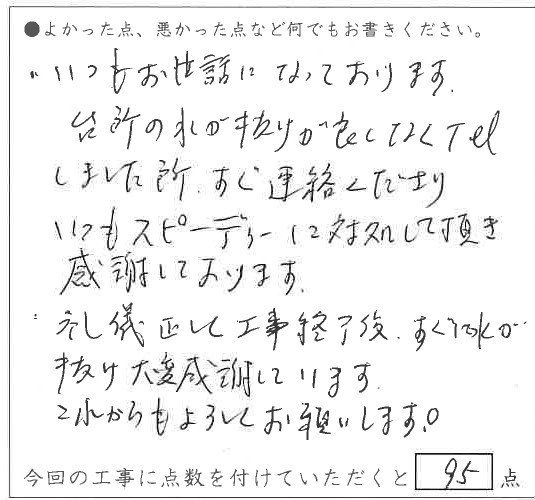 ●よかった点、悪かった点など何でもお書きください。
いつもお世話になっております。
台所の水が抜けが良くなくTel
しました所、すぐ連絡くださり
いつもスピーディーに対処して頂き
感謝しております。
礼儀正しく工事終了後、すぐ水が
抜け大変感謝しています。
これからもよろしくお願いします。
今回の工事に点数を付けていただくと 95 点